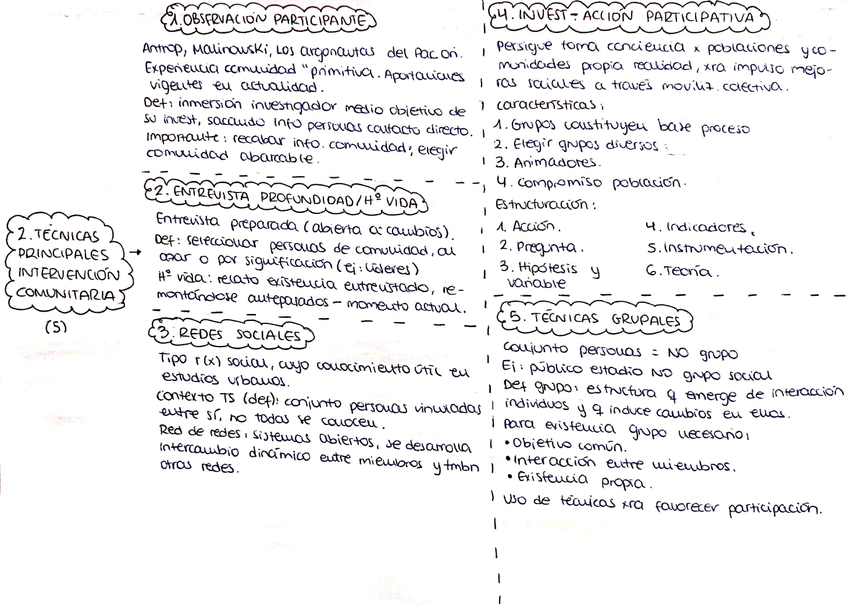 2. TÉCNICAS
PRINCIPALES
INTERVENCIÓN
COMUNITARIA
(5)
1. OBSERVACIÓN PARTICIPANTE
Antrop, Malinowski, Los argonautas del Pac. ori.
Experiencia comunidad "primitiva. Aportaciones
vigentes en actualidad.
Def: inmersión investigador medio objetivo de
su invest, sacando info personas contacto directo.
Importante: recabar info. comunidad; elegir
comunidad abarcable.
2. ENTREVISTA PROFUNDIDAD/Hª VIDA
Entrevista preparada (abierta a cambios).
Def: seleccionar personas de comunidad, al
azar o por significación (ej: líderes)
Hª vida: relato existencia entrevistado, re-
montándose antepasados - momento actual.
3. REDES SOCIALES
Tipo r(x) social, cuyo conocimiento útil en
estudios urbanos.
Contexto TS (def): conjunto personas vinculadas
entre sí, no todas se conocen.
Red de redes: sistemas abiertos, se desarrolla
intercambio dinámico entre miembros y tmbn
otras redes.
4. INVEST-ACCIÓN PARTICIPATIVA
Persigue toma conciencia x poblaciones y co-
munidades propia realidad, xra impulso mejo-
ras sociales a través moviliz. colectiva.
Características:
1. Grupos constituyen base proceso
2. Elegir grupos diversos:
3. Animadores.
4. Compromiso población.
Estructuración:
1. Acción.
2. Pregunta.
3. Hipótesis y
variable
4. Indicadores.
5. Instrumentación.
6. Teoría.
5. TÉCNICAS GRUPALES
Conjunto personas = NO grupo
Ej: público estadio NO grupo social
Def grupo: estructura q emerge de interacción
individuos y q induce cambios en ellos.
Para existencia grupo necesario:
• Objetivo común.
• Interacción entre miembros.
• Existencia propia.
Uso de técnicas xra favorecer participación.